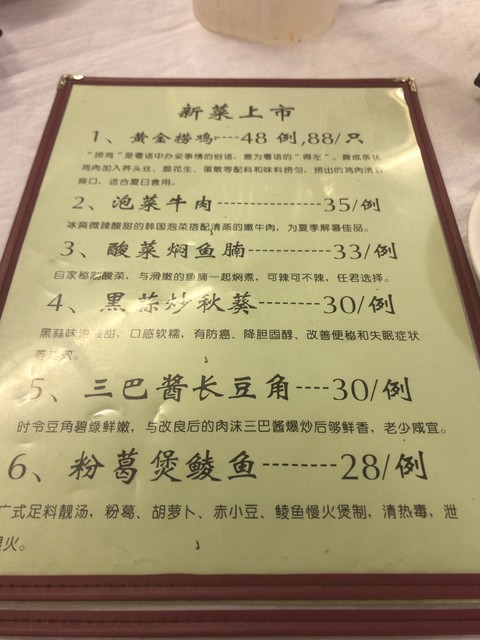 新菜上市
1、黄金捞鸡----48 例,88/只
“捞鸡”是粤语中办妥事情的俗语，意为粤语的“得左”。撕成条状
鸡肉加入荞头丝、脆花生、蛋散等配料和味料捞匀，捞出的鸡肉清新
爽口，适合夏日食用。
2、泡菜牛肉-----------35/例
冰爽微辣酸甜的韩国泡菜搭配清蒸的嫩牛肉，为夏季解暑佳品。
3、酸菜焖鱼腩---------33/例
自家秘制酸菜，与滑嫩的鱼腩一起焖煮，可辣可不辣，任君选择。
4、黑蒜炒秋葵---------30/例
黑蒜味道酸甜，口感软糯，有防癌、降胆固醇、改善便秘和失眠症状
等功效。
5、三巴酱长豆角----30/例
时令豆角碧绿鲜嫩，与改良后的肉沫三巴酱爆炒后够鲜香，老少咸宜。
6、粉葛煲鲮鱼--------28/例
广式足料靓汤，粉葛、胡萝卜、赤小豆、鲮鱼慢火煲制，清热毒，泄
火。